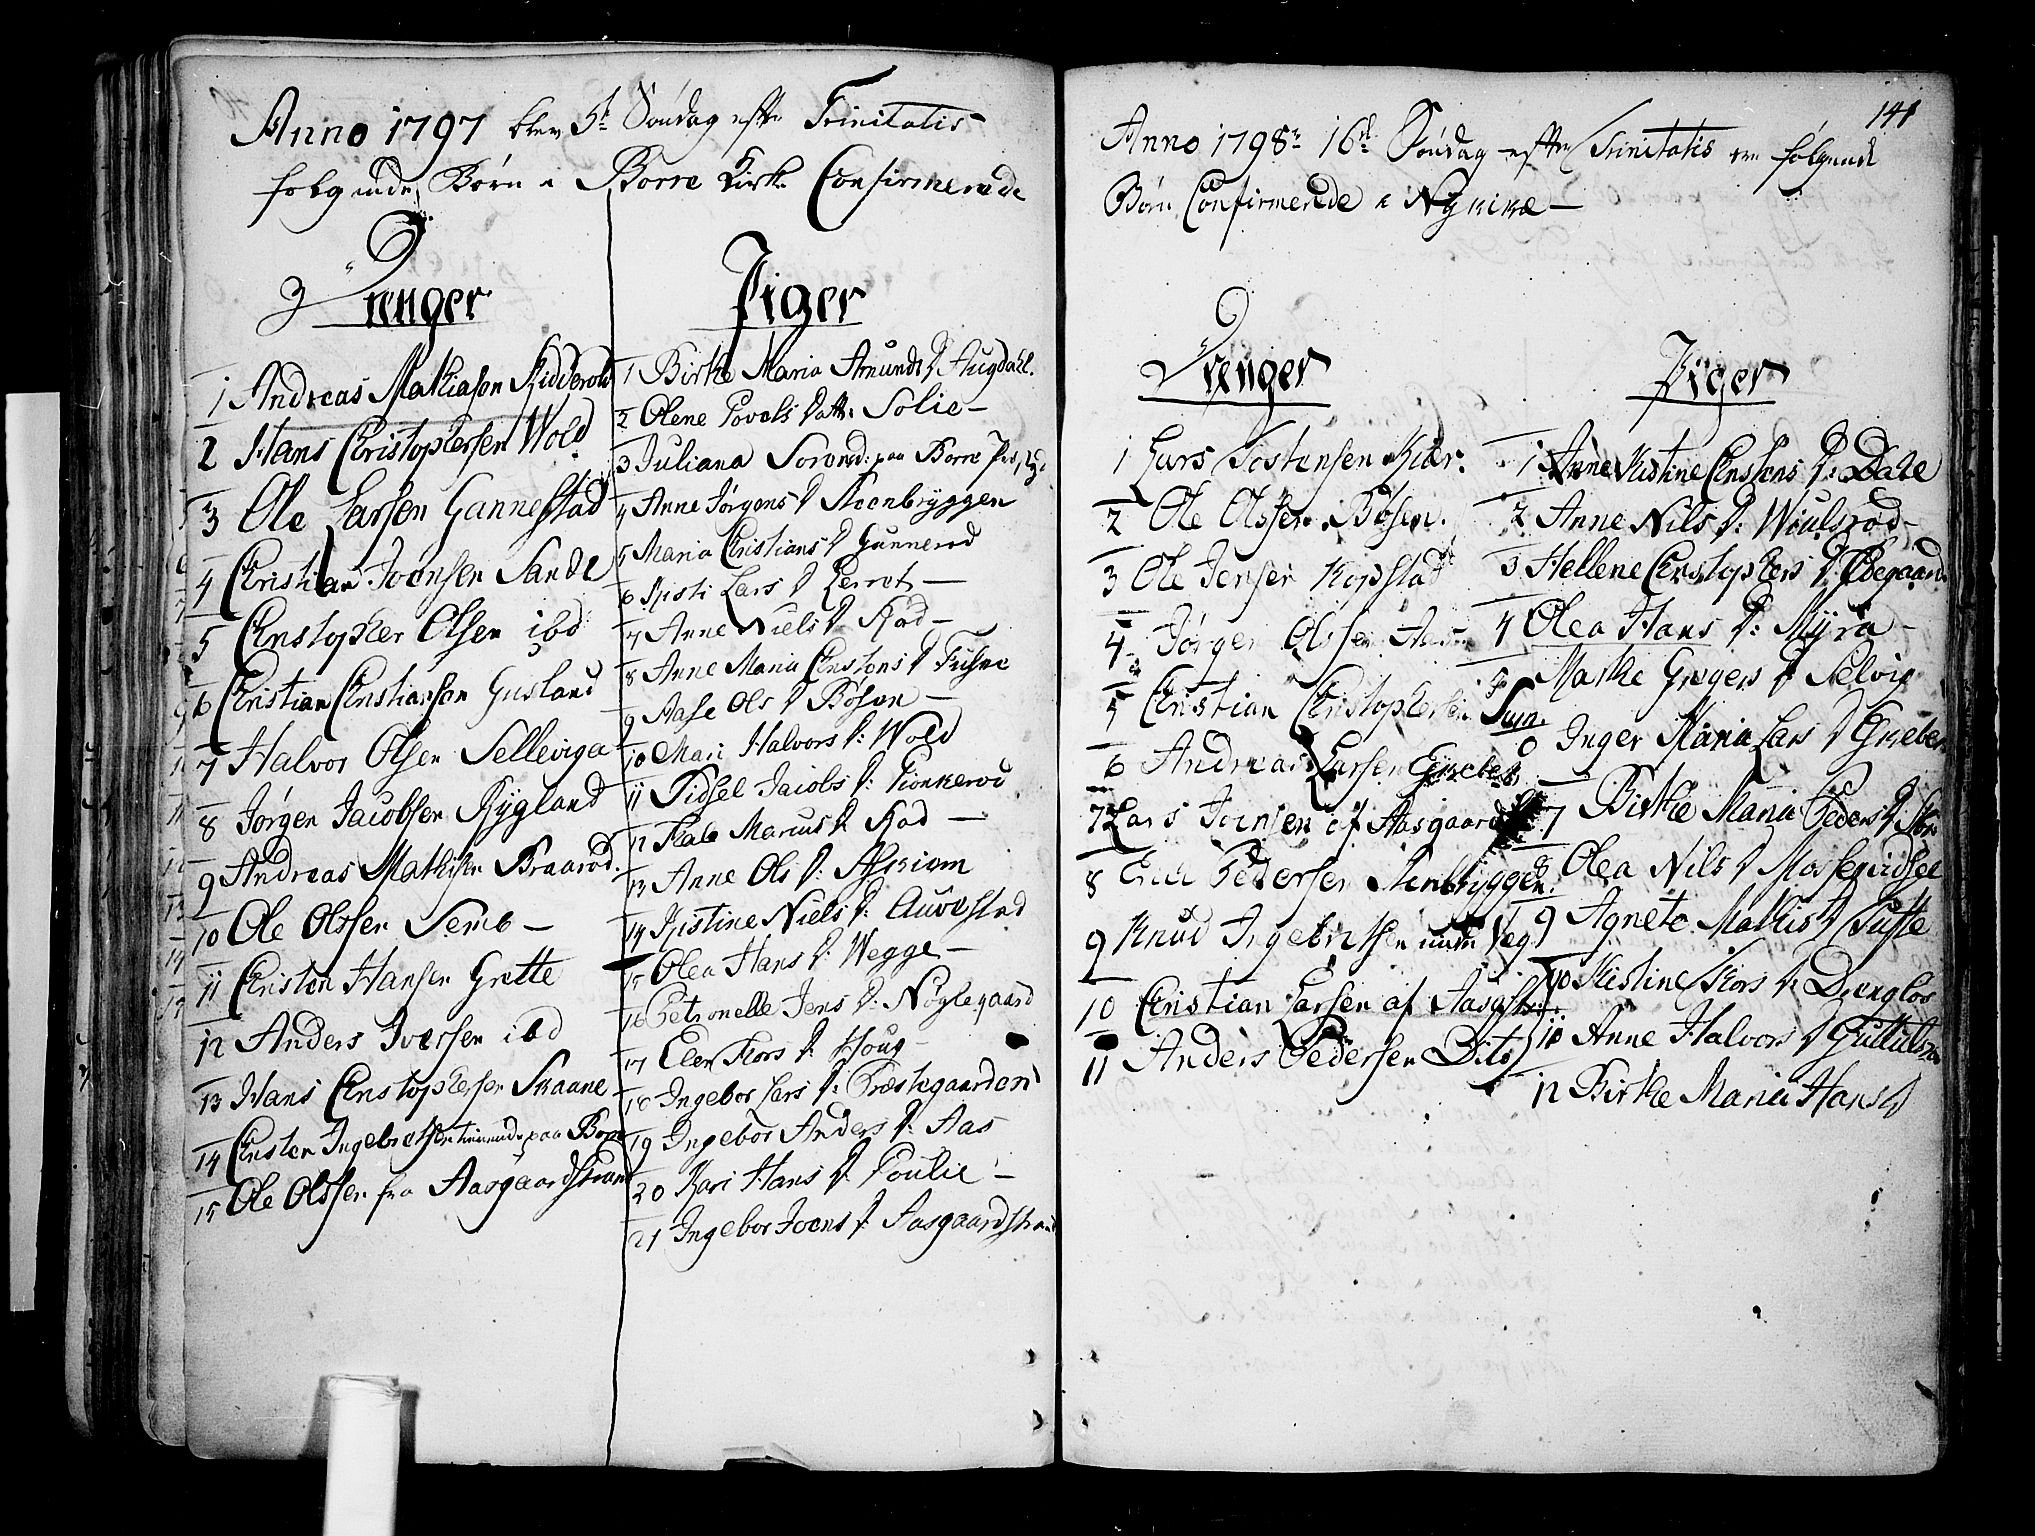 Anno 1797 blev 5te Søndag efter Trinitatis
følgende Børn i Borre Kirke Confirmerede
Drenger
1 Andreas Mathiasen
2 Hans Christophersen Wold
3 Ole Larsen Gannestad
4 Christian Ivensen Sande
5 Christopher Olsen ibd
6 Christian Christiansen Gusland
7 Halvor OlsenSelleviga
8 Jørgen Jacobsen Rygland
9 Andreas Mathisen Braarød
10 Ole Olssen Semb
11 Christen Hansen Grette
12 Anders Iversen ibd
13 Hans Christophersen Skaane
14 Christen Ingebretsen tienende paa
15 Ole Olssen fra Aasgaardstrand
Piger
1 Birthe Maria Amunds D Augdahl.
2 Olene Povels Datter Solie
3 Juliana paa Borre
4 Anne Jørgens D Steenbryggen
5 Maria Christians D Gunnerød
6 Kisti Lars D
7 Anne Niels D. Rød
8 Anne Maria Christens D
9 Aase Ols D Bøsen
10 Mari Halvors D: Wold
11 Sidsel Jacobs D:
12 Marcus D. Rød
13 Anne Ols D:
14 Kistine Niels D:
15 Olea Hans D: Wegge
16 Petronelle Jens D: Nøglegaard
17 Elen Thors D: Houg
18 Ingebor Lars D: Præstegaarden
19 Ingebor Anders D: Aas
20 Kari Hans D: Poulie
21 Ingebor Ivens D: Aasgaardstrand
141
Anno 1798 16de Søndag efter Trinitatis ere følgende
Børn Confirmerede i Nykirke
Drenger
1 Lars Tostensen Kiær.
2 Ole Olssen Bøsen.
3 Ole Jensen Kopstad
4 Jørgen Olssen Aas
5 Christian Christophersen
6 Andreas Larsen
7 Lars Ivensen af Aasgaards
8 Pedersen Stenbryggen.
9 Knud Ingebretsen
10 Christian Larsen af Aasgstr:
11 Anders Pedersen
Piger
1 Anne Kistine Christens D: Dahl
2 Anne Nils D:
3 Hellene Christophers D:
4 Olea Hans D: Myra
5 Marthe Gregers D Selvig
6 Inger Maria Lars D
7 Birthe Maria Peders D
8 Olea Nils D
9 Agnete Mathis D Tufte
10 Kistine Thors D:
10 Anne Halvors D
12 Birthe Maria Hans D